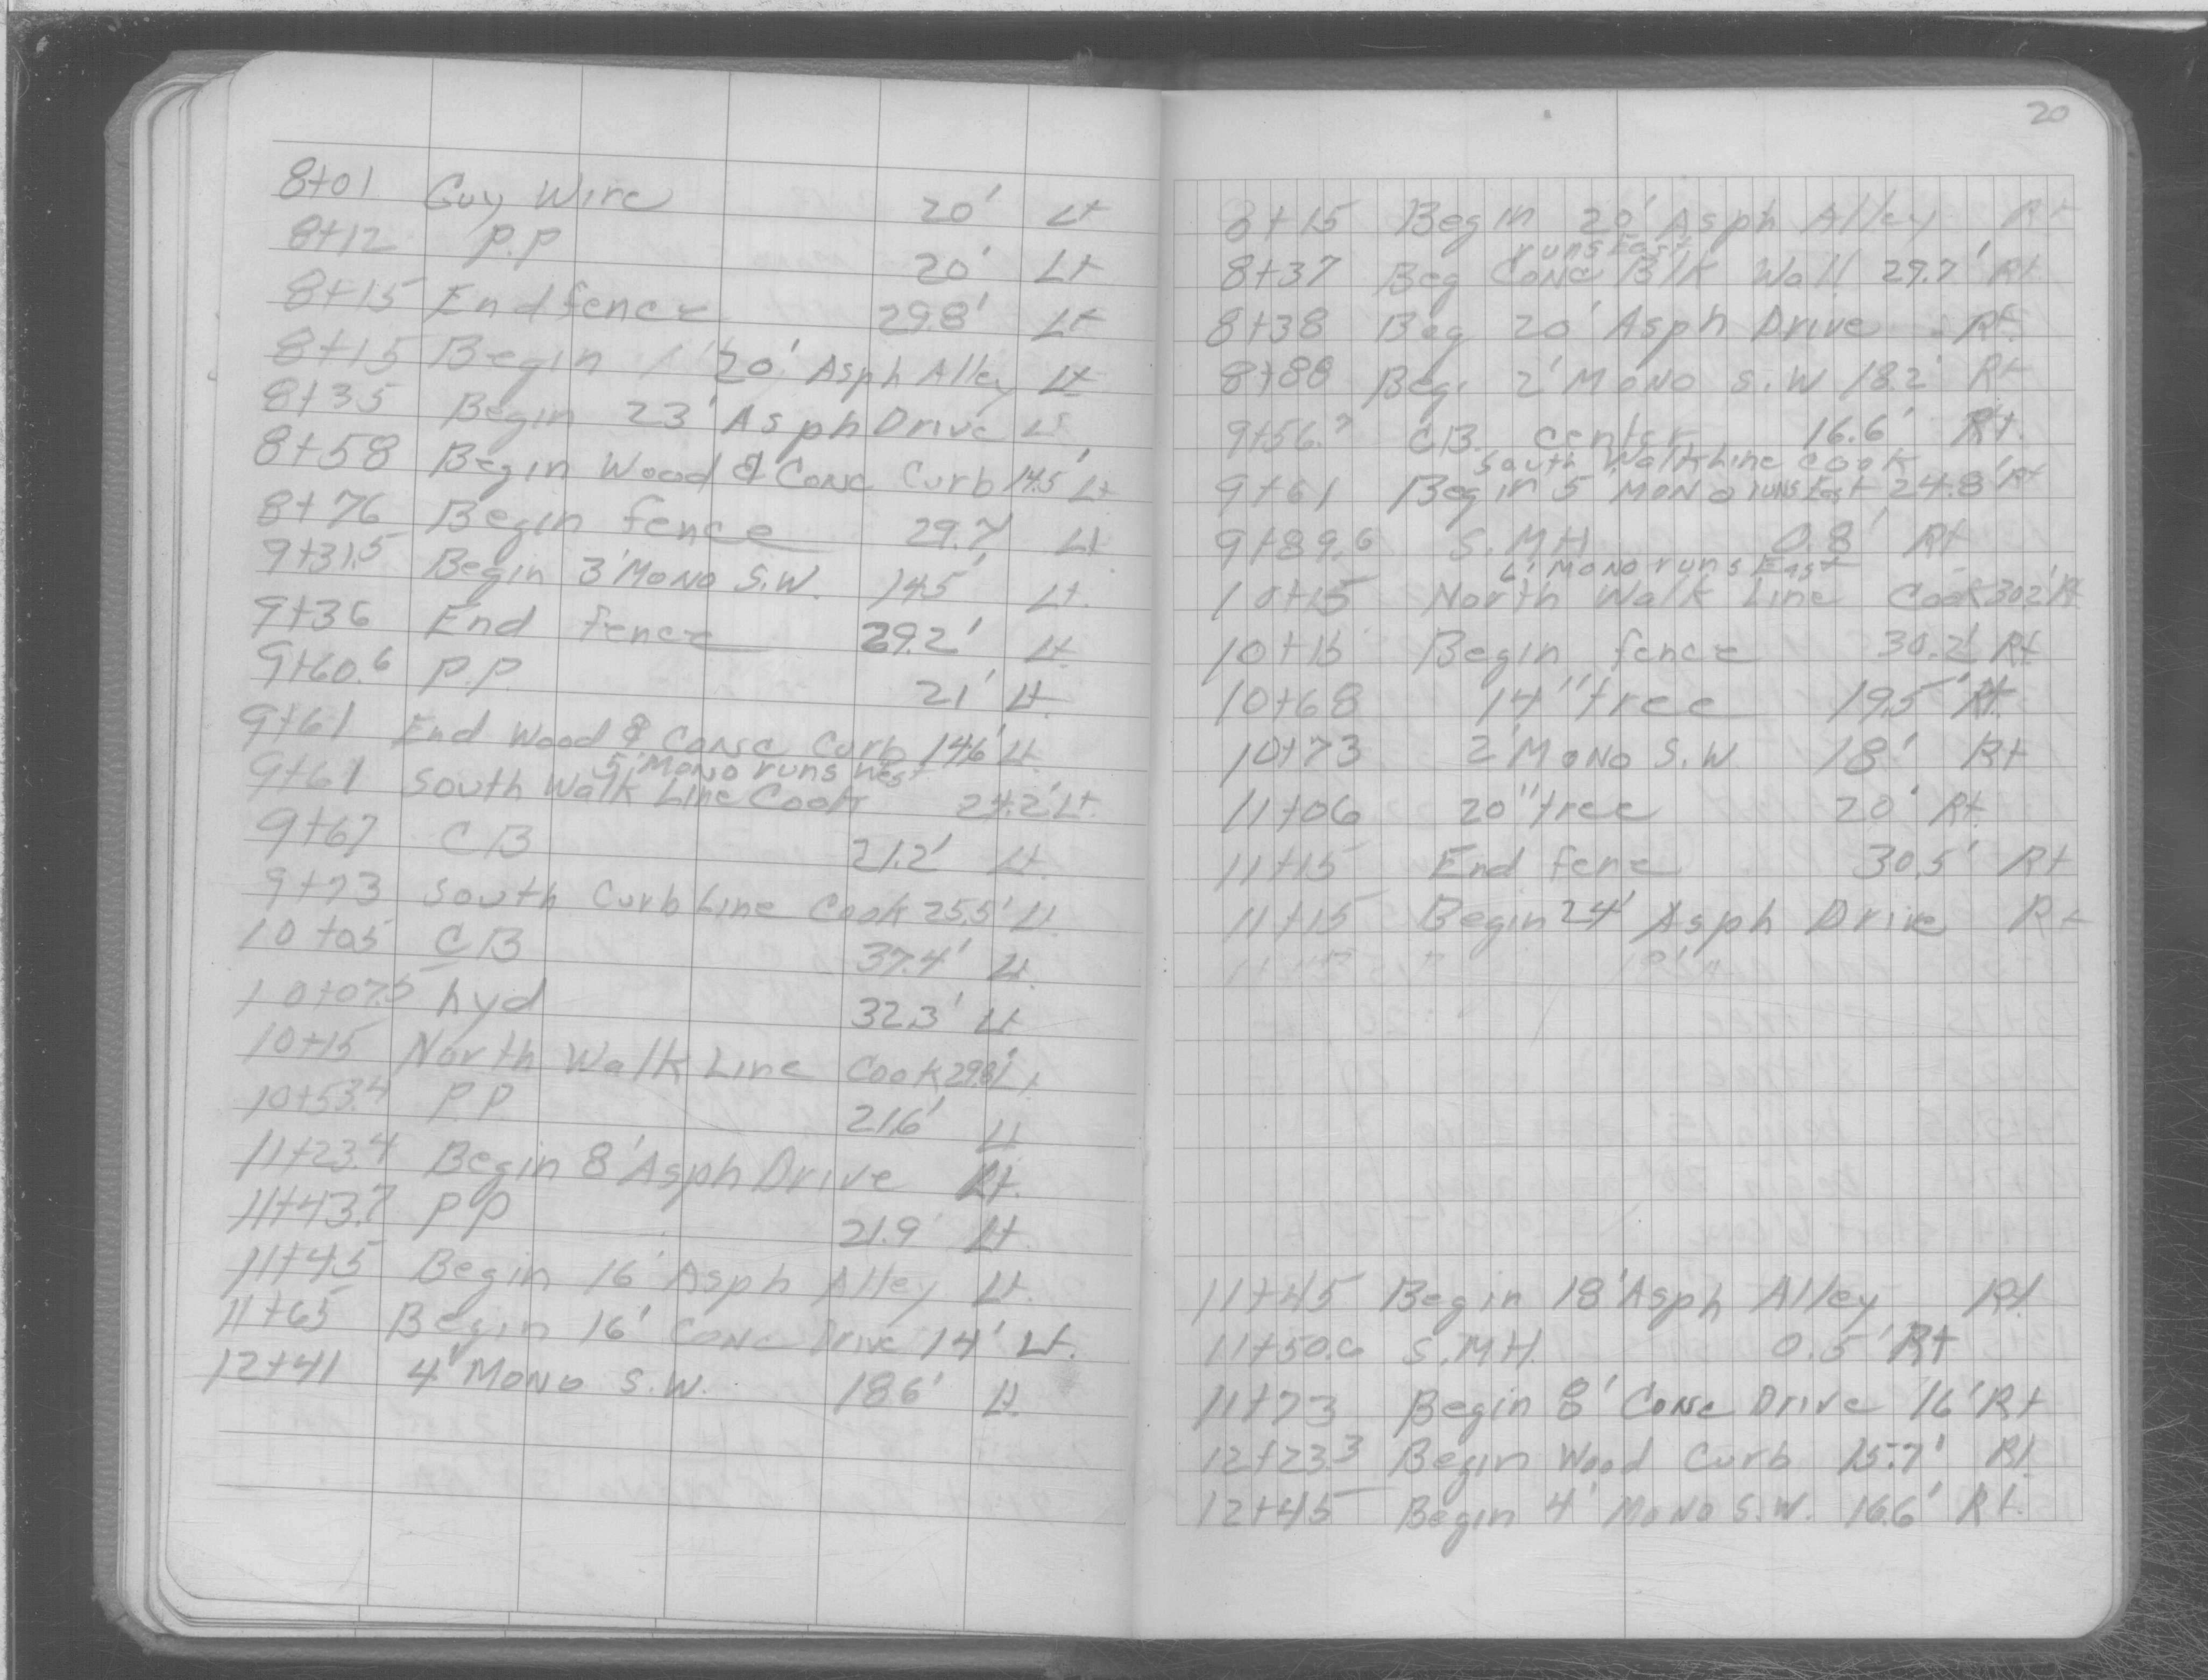 8+01 Guy Wire 20' Lt
8+12 P.P 20' Lt
8+15 End fence 29.8' Lt
8+15 Begin 20' Asph Alley Lt
8+35 Begin 23' Asph Drive Lt
8+58 Begin Wood & Conc Curb 14.5' Lt
8+76 Begin fence 29.7' Lt
9+31.5 Begin 3' Mono S.W. 14.5' Lt.
9+36 End fence 29.2' Lt.
9+60.6 P.P. 21' Lt.
9+61 End Wood & Conc Curb 14.6' Lt.
5' Mono runs West
9+61 South Walk Line Cook 24.2' Lt.
9+67 CB 21.2' Lt.
9+73 South Curb Line Cook 25.5' Lt.
10+05 CB 37.4' Lt.
10+07.5 hyd 32.3' Lt
10+15 North Walk Line Cook 29.8' Lt
10+53.4 P.P 21.6' Lt
11+23.4 Begin 8' Asph Drive Lt.
11+43.7 PP 21.9' Lt.
11+45 Begin 16' Asph Alley Lt.
11+65 Begin 16' Conc Drive 14' Lt.
12+41 4' Mono S.W. 18.6' Lt.
20
8+15 Begin 20' Asph Alley Rt
runs East
8+37 Beg Conc Blk Wall 29.7' Rt
8+38 Beg 20' Asph Drive Rt.
8+88 Beg. 2' Mono S.W 18.2' Rt
9+56.7 C.B. center 16.6' Rt.
South Walk Line Cook
9+61 Begin 5' Mono runs East 24.8' Rt
9+89.6 S.MH 0.8' Rt
6' Mono runs East
10+15 North Walk Line Cook 30.2' Rt
10+16 Begin fence 30.2' Rt
10+68 14" tree 19.5' Rt.
10+73 2' Mono S.W. 18' Rt
11+06 20" tree 20' Rt.
11+15 End fence 30.5' Rt
11+15 Begin 24' Asph Drive Rt
11+45 Begin 18' Asph Alley Rt.
11+50.6 S.MH. 0.5' Rt
11+73 Begin 8' Conc Drive 16' Rt
12+23.3 Begin Wood Curb 15.7' Rt.
12+45 Begin 4' Mono S.W. 16.6' Rt.